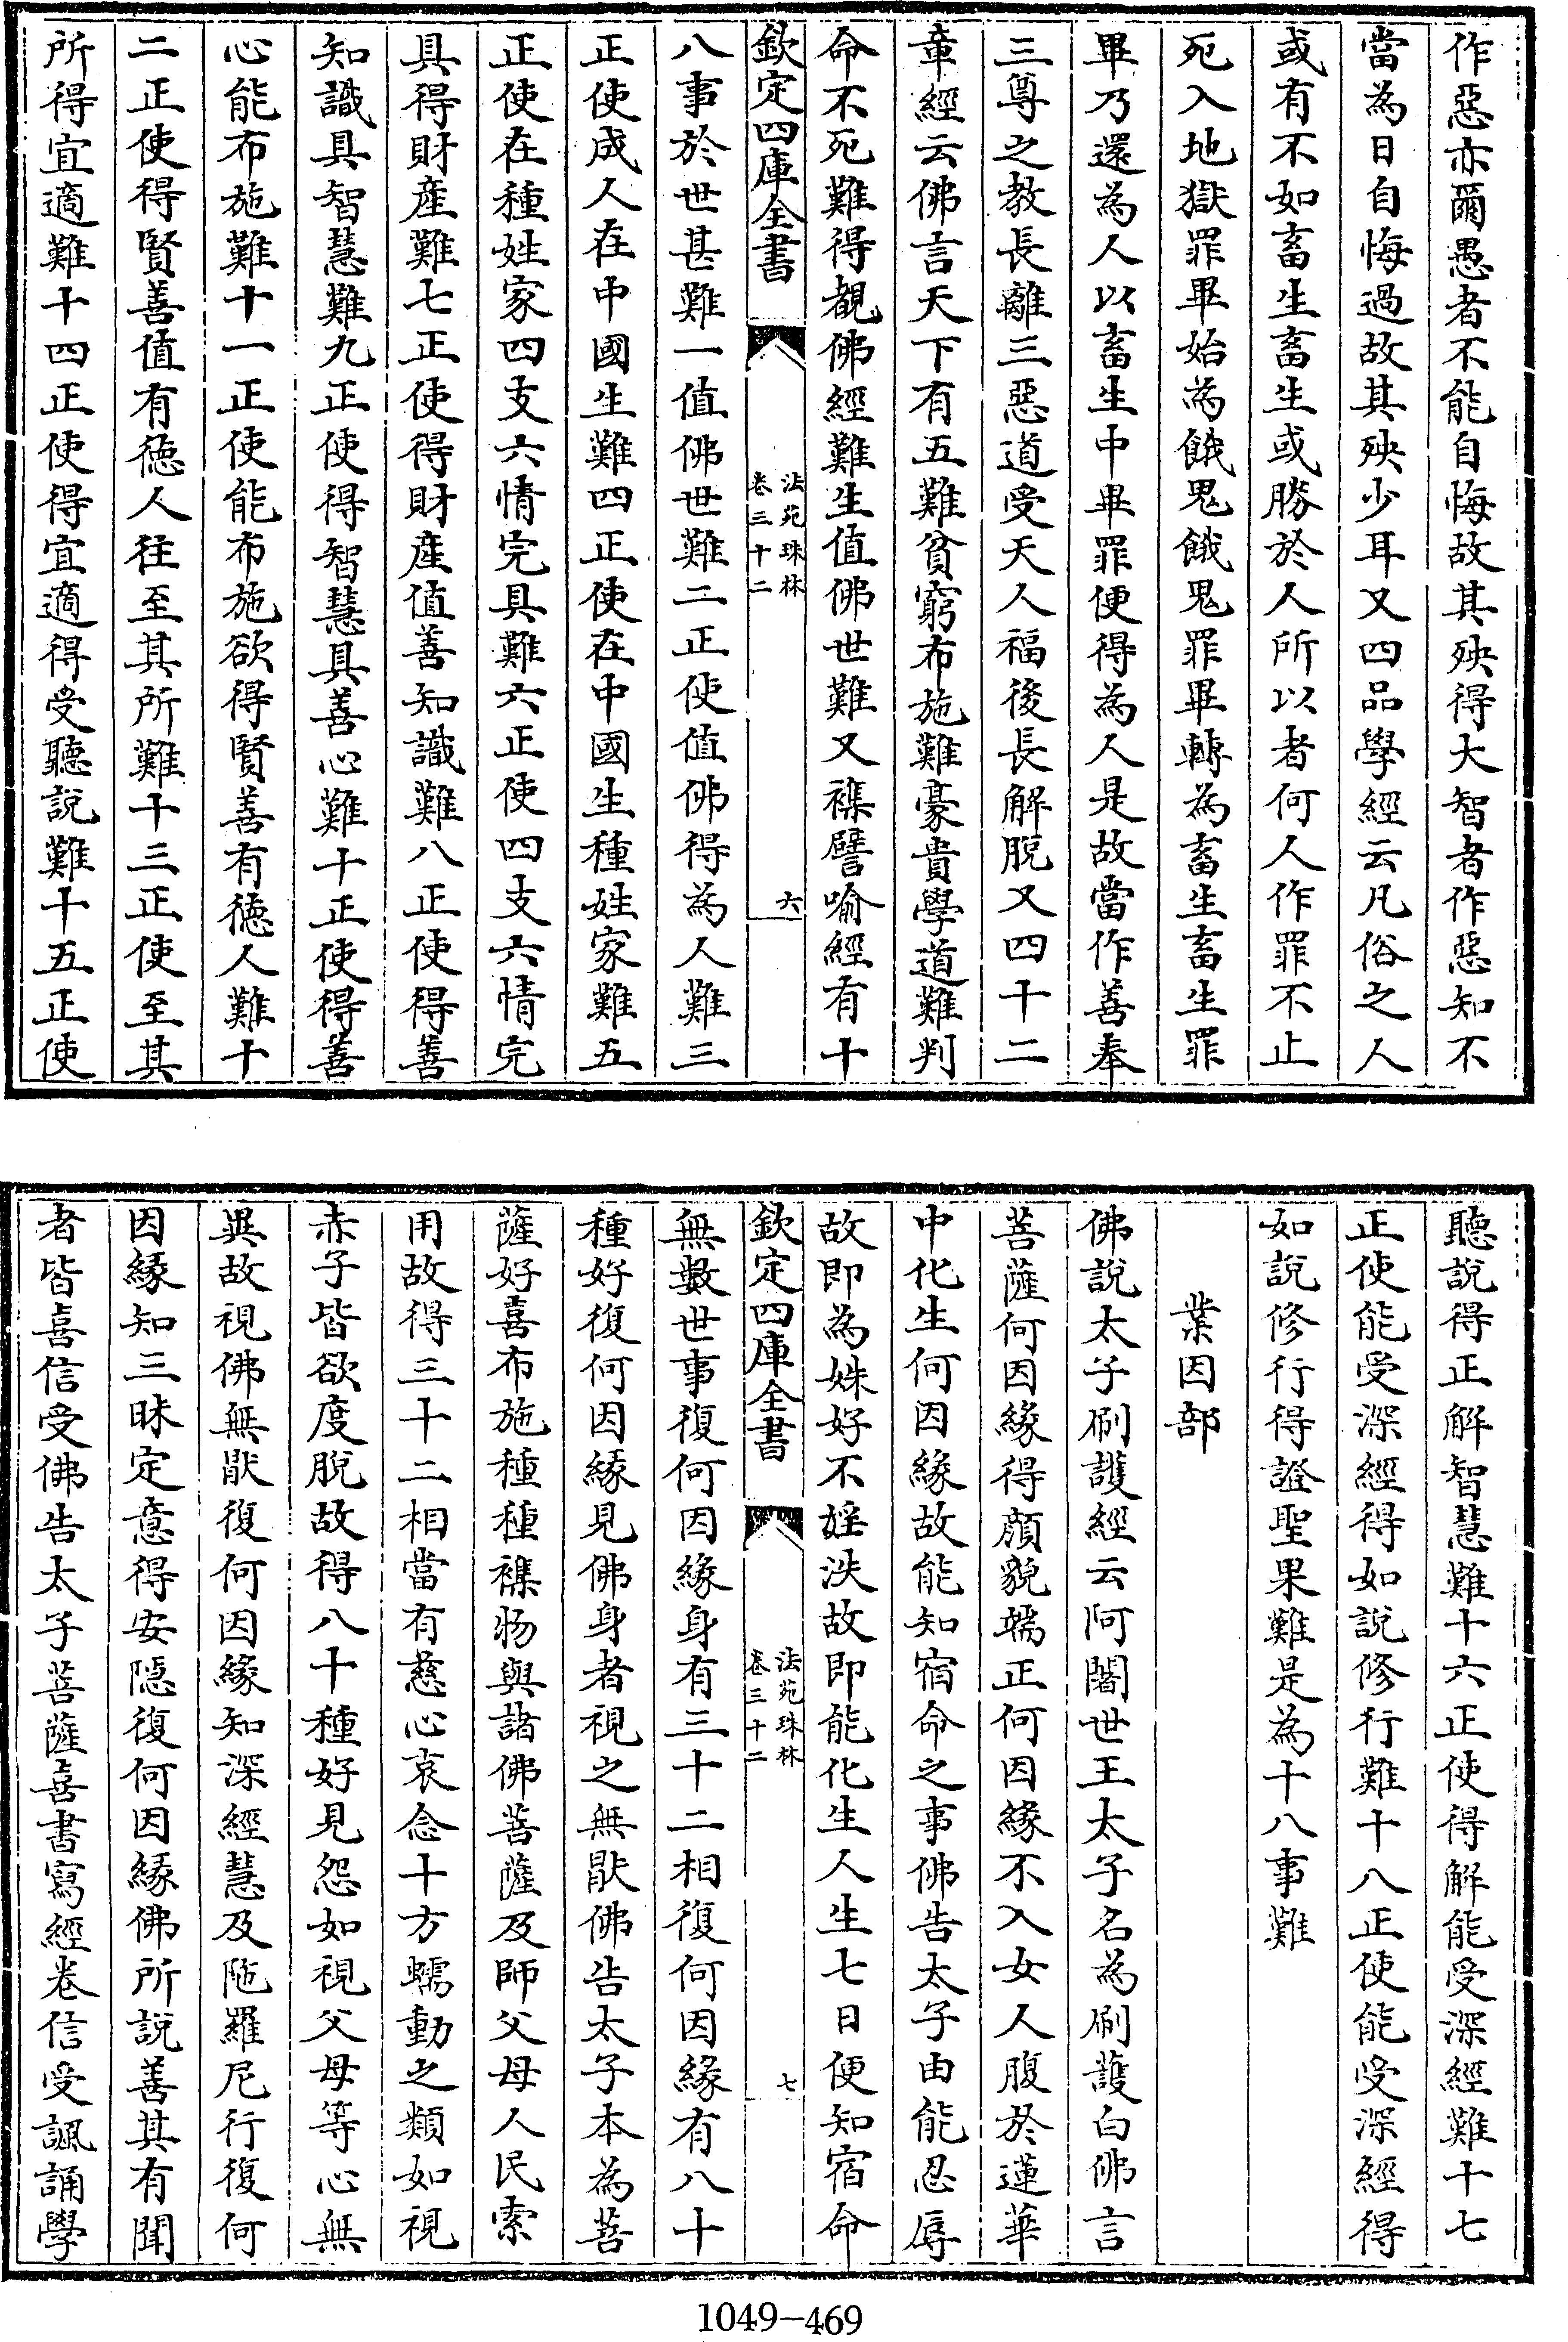 作惡亦爾愚者不能自悔故其殃得大智者作惡知不
當為日自悔過故其殃少耳又四品學經云凡俗之人
或有不如畜生畜生或勝於人所以者何人作罪不止
死入地獄罪畢始為餓鬼餓鬼罪畢轉為畜生畜生罪
畢乃還為人以畜生中畢罪便得為人是故當作善奉
三尊之教長離三惡道受天人福後長解脫又四十二
章經云佛言天下有五難貧窮布施難豪貴學道難判
命不死難得覩佛經難生值佛世難又襍譬喻經有十
欽定四庫全書
法苑珠林
卷三十二
六
八事於世甚難一值佛世難二正使值佛得為人難三
正使成人在中國生難四正使在中國生種姓家難五
正使在種姓家四支六情完具難六正使四支六情完
具得財產難七正使得財產值善知識難八正使得善
知識具智慧難九正使得智慧具善心難十正使得善
心能布施難十一正使能布施欲得賢善有徳人難十
二正使得賢善值有徳人往至其所難十三正使至其
所得宜適難十四正使得宜適得受聽說難十五正使
聽說得正解智慧難十六正使得解能受深經難十七
正使能受深經得如說修行難十八正使能受深經得
如說修行得證聖果難是為十八事難
業因部
佛說太子刷護經云阿闍世王太子名為刷護白佛言
菩薩何因緣得顔貌端正何因緣不入女人腹於蓮華
中化生何因緣故能知宿命之事佛告太子由能忍辱
故即為姝好不婬泆故即能化生人生七日便知宿命
欽定四庫全書
法苑珠林
卷三十二
七
無數世事復何因緣身有三十二相復何因緣有八十
種好復何因緣見佛身者視之無猒佛告太子本為菩
薩好喜布施種種襍物與諸佛菩薩及師父母人民索
用故得三十二相當有慈心哀念十方蠕動之類如視
赤子皆欲度脫故得八十種好見怨如視父母等心無
異故視佛無猒復何因緣知深經慧及陁羅尼行復何
因緣知三昧定意得安隠復何因緣佛所說善其有聞
者皆喜信受佛告太子菩薩喜書寫經卷信受諷誦學
1049-469